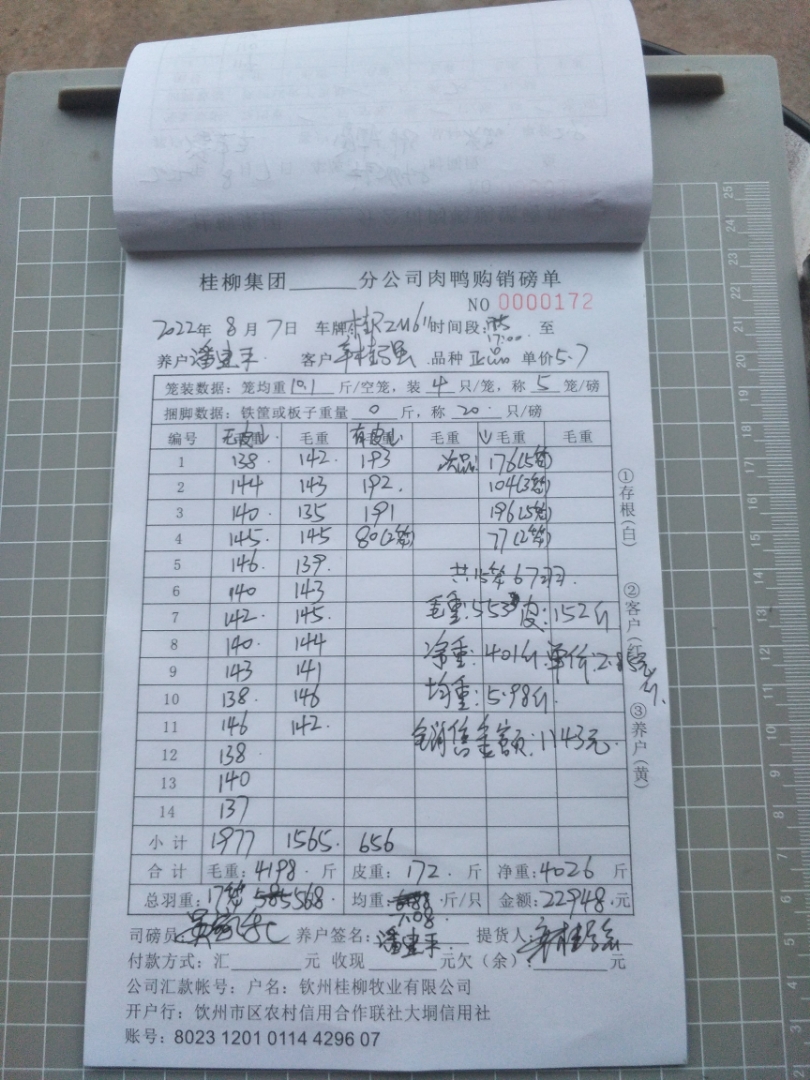 桂柳集团______分公司肉鸭购销磅单
NO 0000172
2022年 8月7日 车牌: 时间段: 至
17:00
养户 客户 品种 正品 单价5.7
笼装数据: 笼均重10.1斤/空笼, 装4只/笼, 称5笼/磅
捆脚数据: 铁筐或板子重量0斤, 称20.只/磅
编号 无皮 毛重 有皮 毛重 毛重 毛重
1 138. 142. 193 次品: 176(5笼)
2 144 143 192. 104(3笼)
3 140. 135 191 196(5笼)
4 145. 145 80(2笼) 77(2笼)
5 146. 139.
共15笼67只.
6 140 143
7 142. 145. 毛重:553 皮:152斤
8 140. 144
净重:401斤.单价:2.85元/斤.
9 143 141
10 138. 146 均重:5.98斤.
11 146 142. 销售金额:1143元.
12 138.
13 140
14 137
小计 1977 1565. 656
合计 毛重:4198.斤 皮重:172.斤 净重:4026斤
总羽重:17笼 568. 均重: 斤/只 金额:22948.元
7.08
司磅员: 养户签名: 提货人:
付款方式: 汇______元 收现______元欠(余):______元
公司汇款帐号: 户名: 钦州桂柳牧业有限公司
开户行: 钦州市区农村信用合作联社大垌信用社
账号: 8023 1201 0114 4296 07
①存根(白)
②客户(红)
③养户(黄)